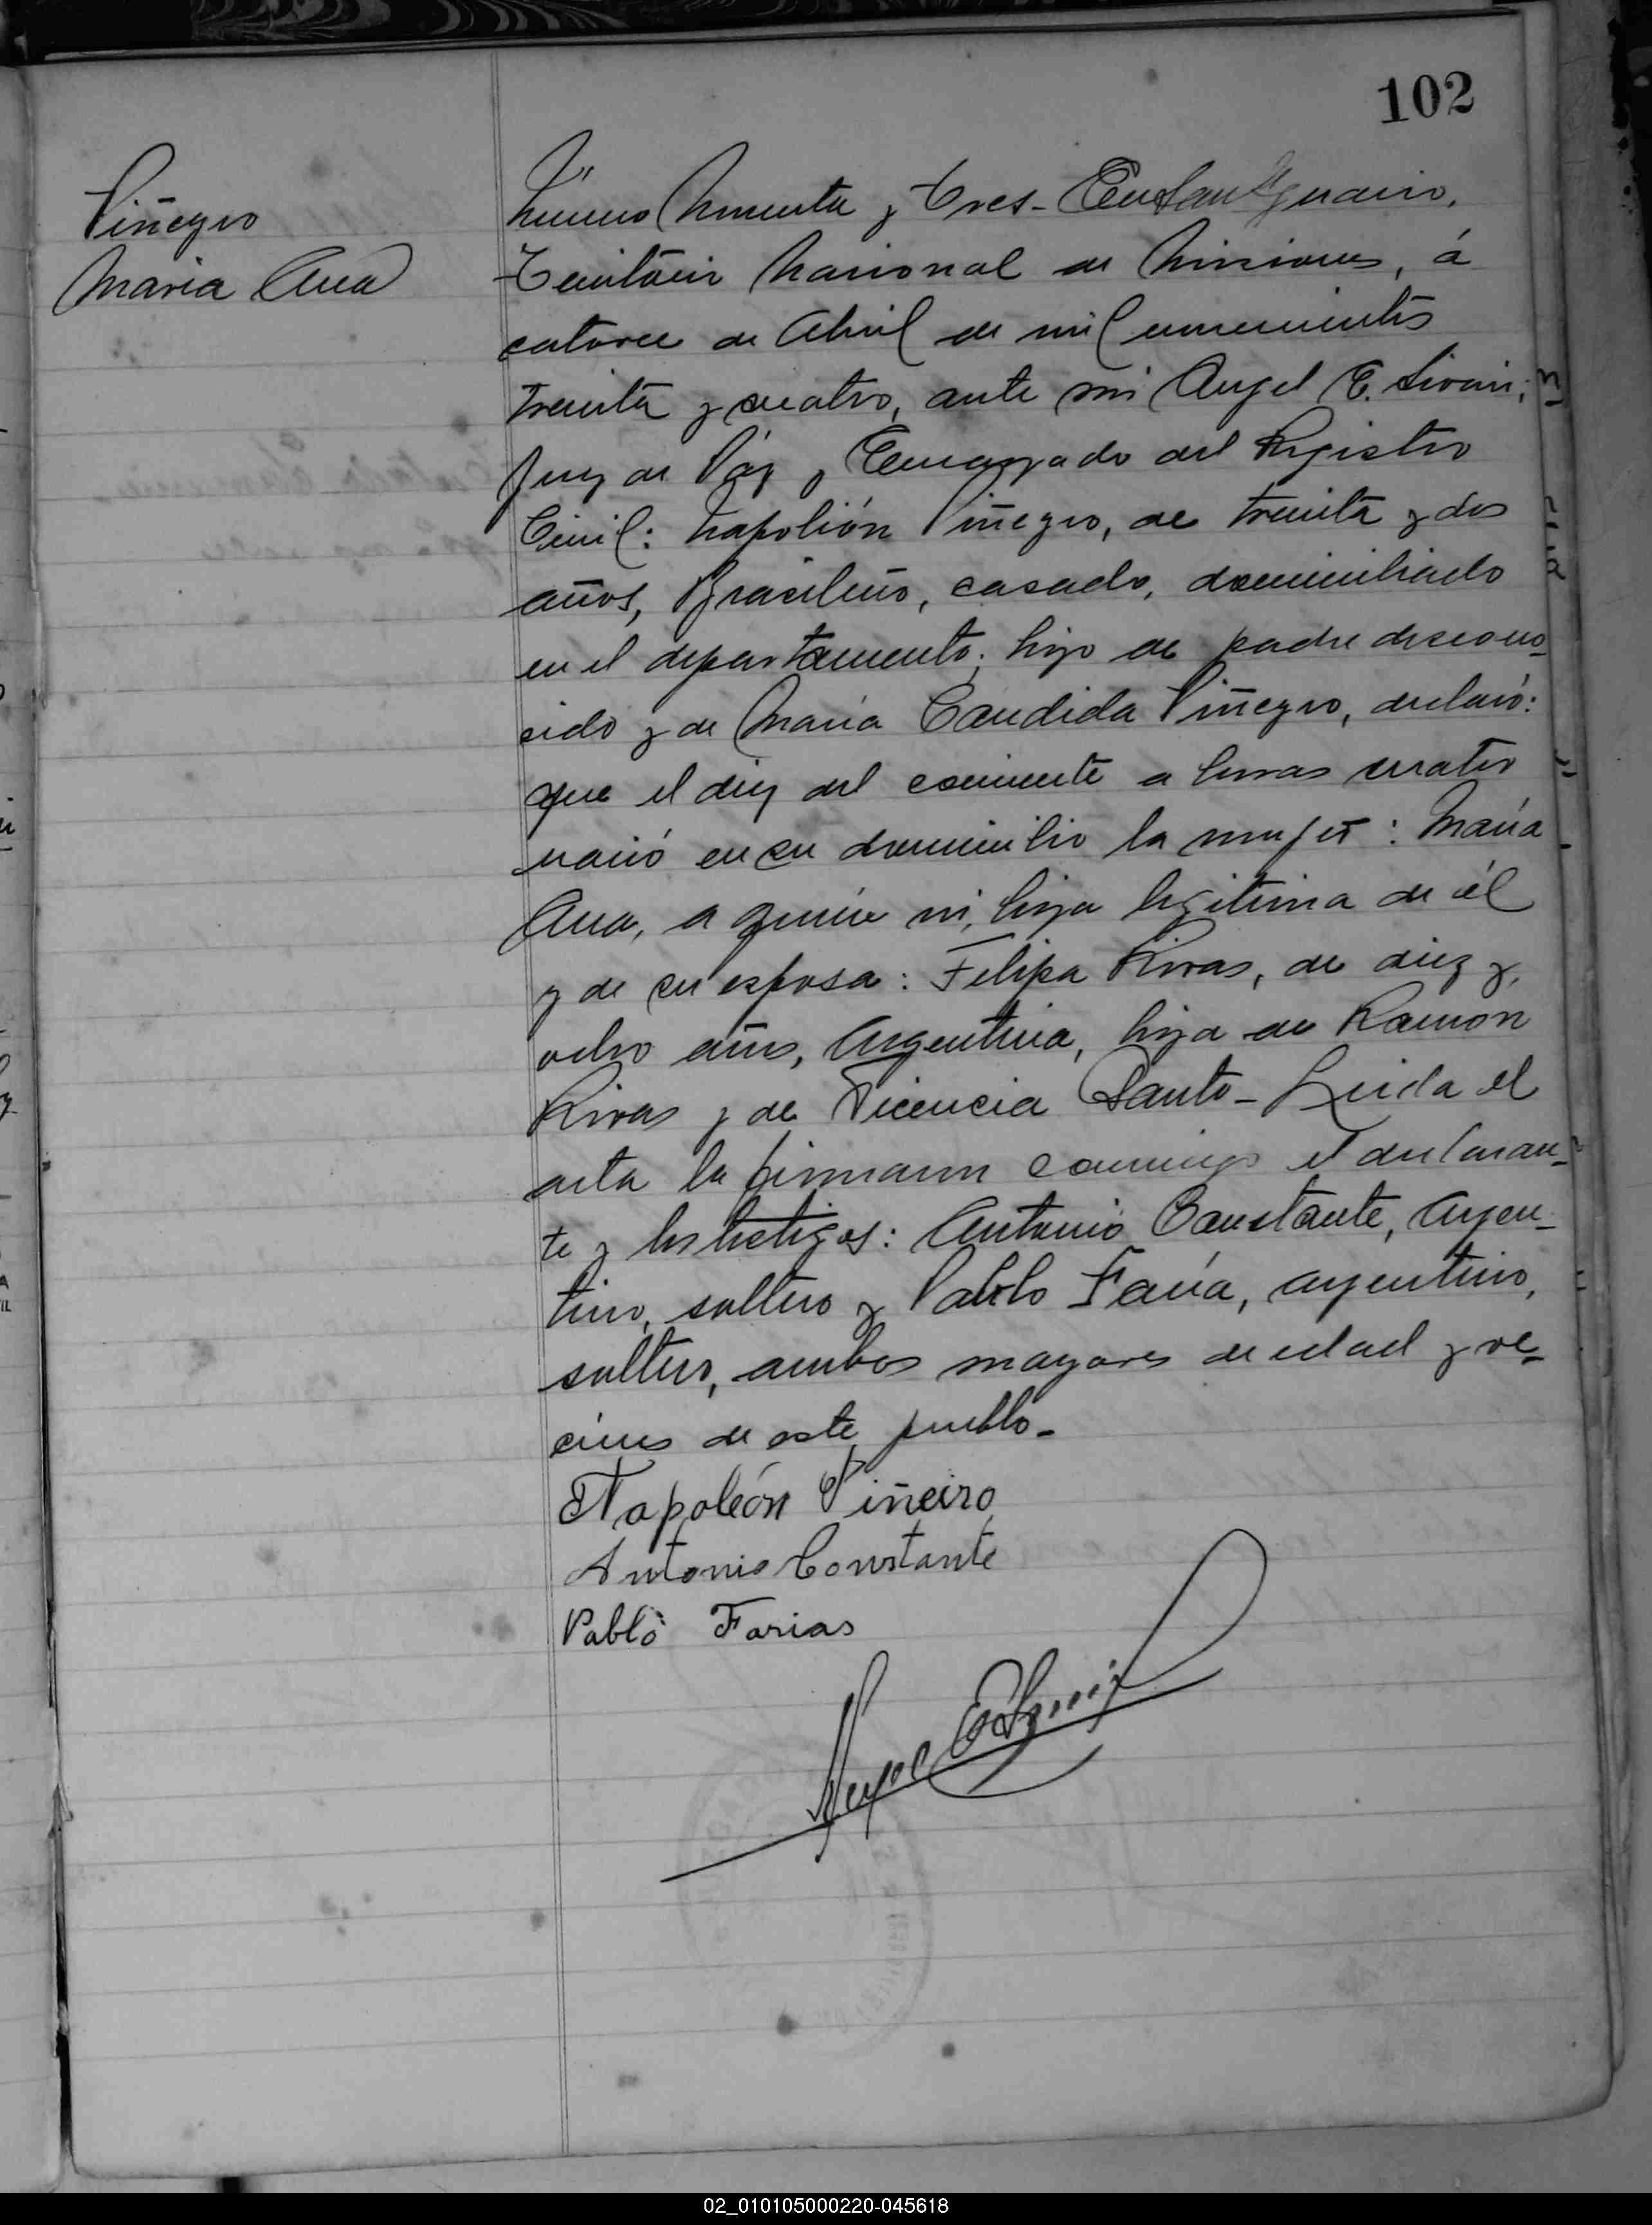 102
Piñeyro
Maria Ana
Número Noventa y Tres - En San Ignacio,
Territorio Nacional de Misiones, á
catorce de Abril de mil novecientos
treinta y cuatro, ante mi Angel E.
Juez de Páz y Encargado del Registro
Civil: Napolión Piñeyro, de treinta y dos
años, Brasileño, casado, domiciliado
en el departamento, hijo de padre descono-
cido y de María Candida Piñeyro, declaró:
que el diez del corriente a horas cuatro
nació en su domicilio la mujer: María
Ana, a quien vi, hija legitima de él
y de su esposa: Felipa Rivas, de diez y
ocho años, Argentina, hija de Ramón
Rivas y de Vicencia Santo - Leida el
acta la firmaron conmigo el declaran-
te y los testigos: Antonio Constante, Argen-
tino, soltero y Pablo Faría, argentino,
soltero, ambos mayores de edad y ve-
cinos de este pueblo -
Napoleón Piñeiro
Antonio Constante
Pablo Farias
Angel E.
02_010105000220-045618